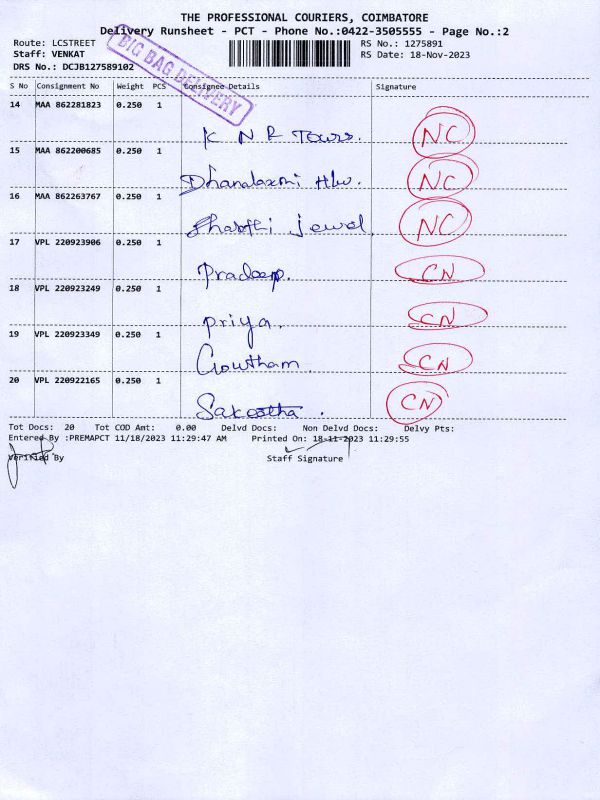 THE PROFESSIONAL COURIERS, COIMBATORE
Delivery Runsheet - PCT - Phone No.:0422-3505555 - Page No.:2
Route: LCSTREET RS No.: 1275891
Staff: VENKAT RS Date: 18-Nov-2023
DRS No.: DCJB127589102
BIG BAG DELIVERY
S No Consignment No Weight PCS Consignee Details Signature
14 MAA 862281823 0.250 1
K N R Tours. NC
15 MAA 862200685 0.250 1
Dhanalaxmi Hlw. NC
16 MAA 862263767 0.250 1
Jewel NC
17 VPL 220923906 0.250 1
Pradeep. CN
18 VPL 220923249 0.250 1
Priya. CN
19 VPL 220923349 0.250 1
Gowtham. CN
20 VPL 220922165 0.250 1
CN
Tot Docs: 20 Tot COD Amt: 0.00 Delvd Docs: Non Delvd Docs: Delvy Pts:
Entered By :PREMAPCT 11/18/2023 11:29:47 AM Printed On: 18-11-2023 11:29:55
Verified By Staff Signature